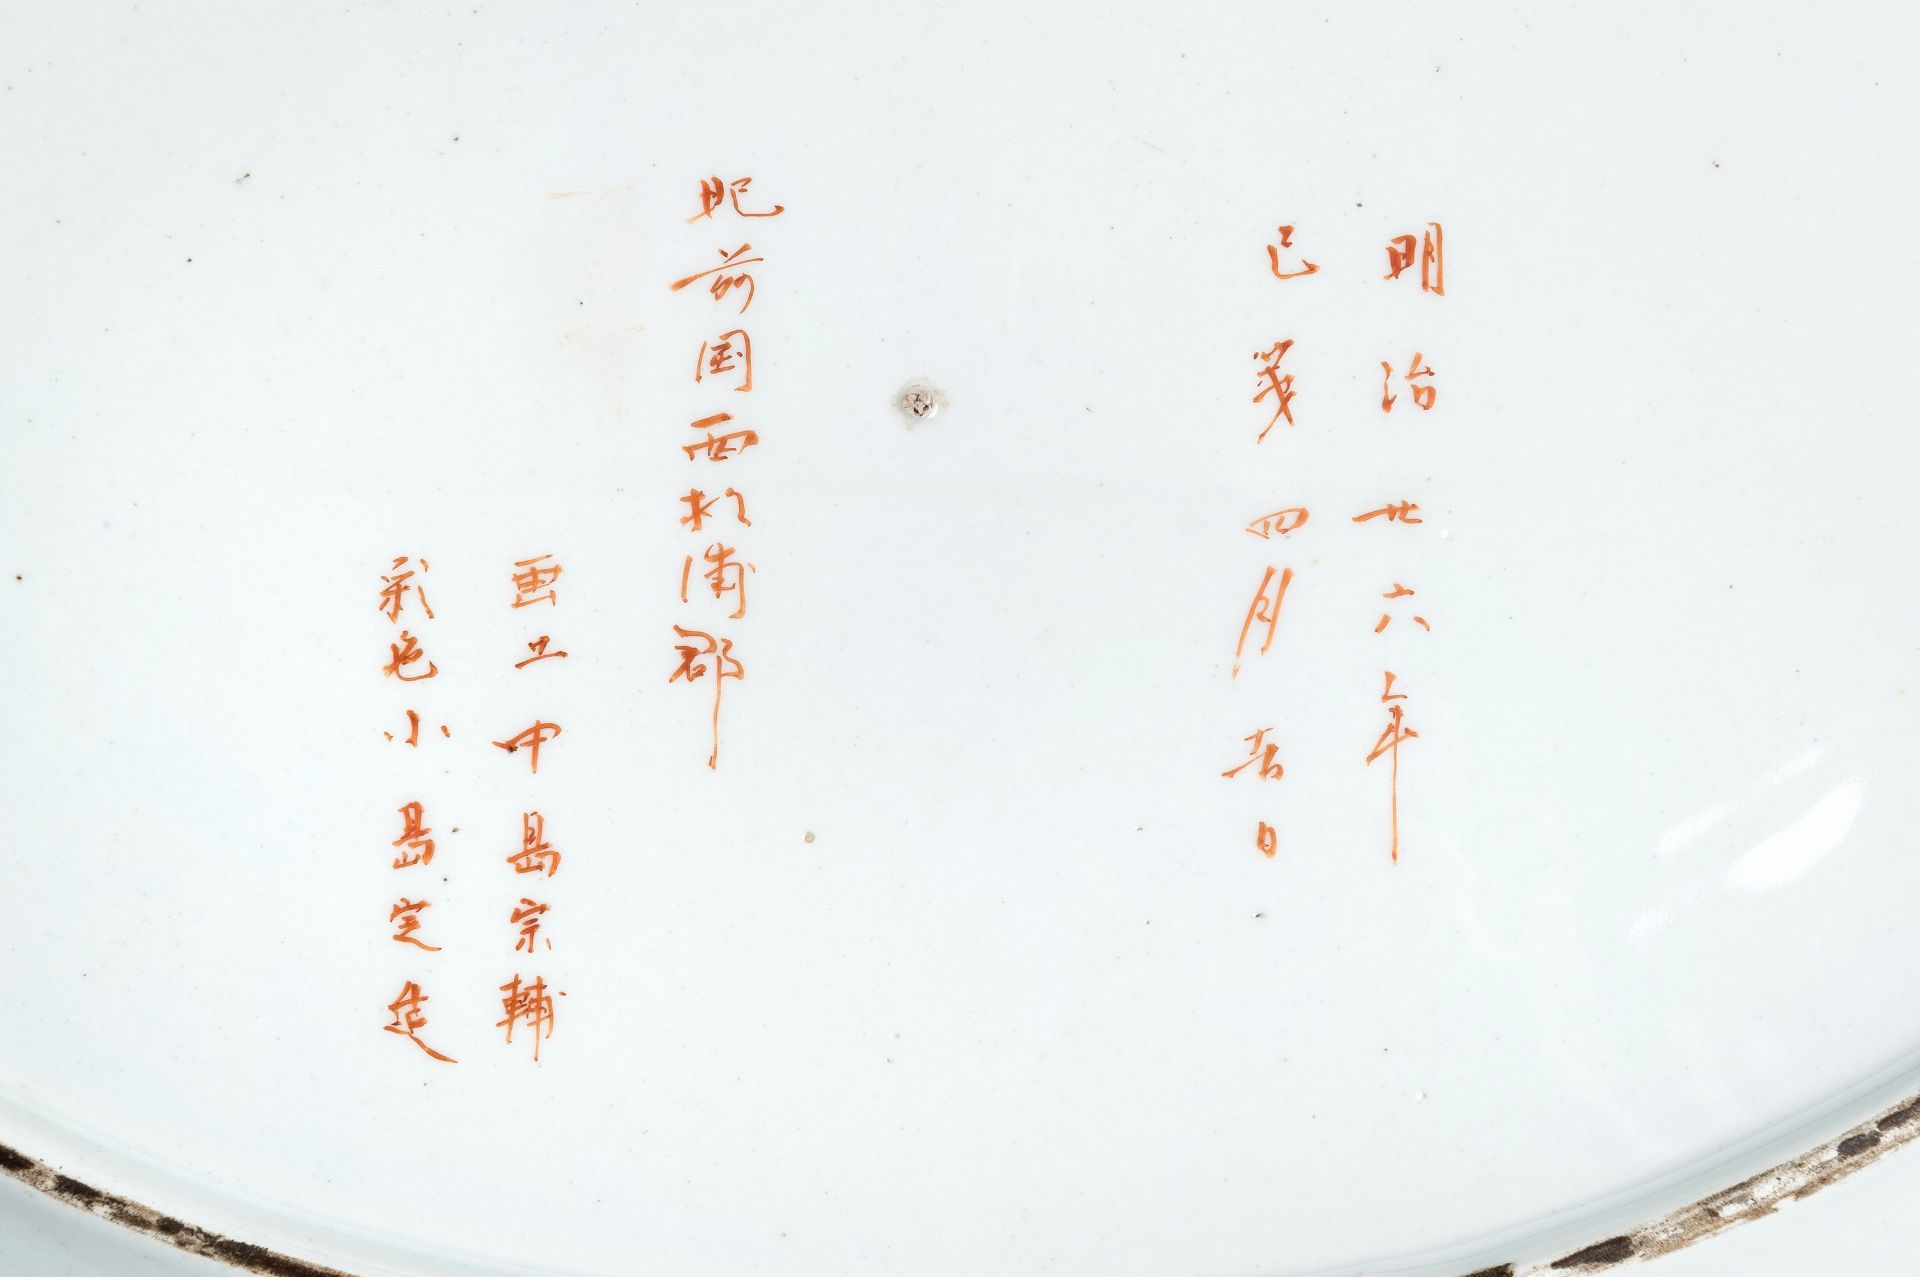 明治廿六年
四月吉日
肥前国西松浦郡
画工中島宗輔
彩色小島定造